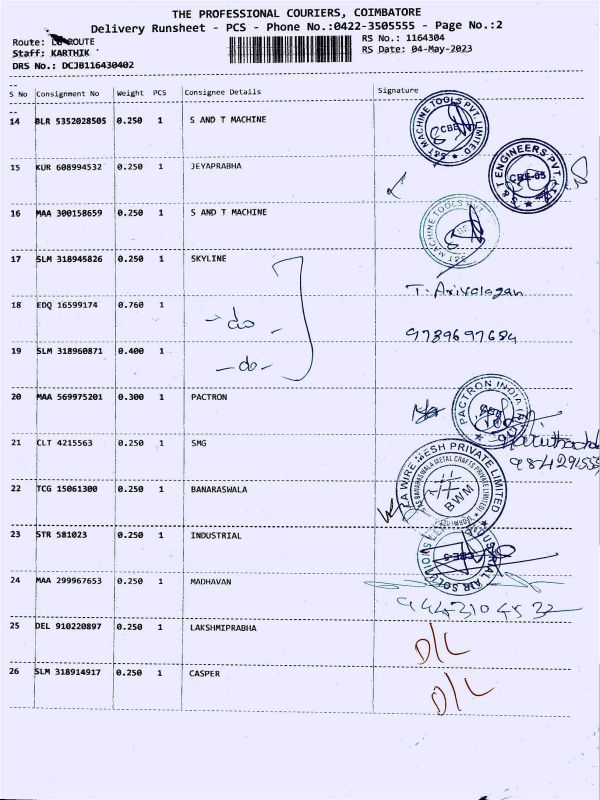 THE PROFESSIONAL COURIERS, COIMBATORE
Delivery Runsheet - PCS - Phone No.:0422-3505555 - Page No.:2
Route: ROUTE
RS No.: 1164304
Staff: KARTHIK
RS Date: 04-May-2023
DRS No.: DCJB116430402
S No Consignment No Weight PCS Consignee Details Signature
14 BLR 5352028505 0.250 1 S AND T MACHINE
S&T MACHINE TOOLS PVT. LIMITED
CBE
15 KUR 608994532 0.250 1 JEYAPRABHA
S & T ENGINEERS PVT. LTD.
CBE-05
16 MAA 300158659 0.250 1 S AND T MACHINE
S&T MACHINE TOOLS PVT
17 SLM 318945826 0.250 1 SKYLINE
T. Arivalagan
18 EDQ 16599174 0.760 1 - do -
9789697684
19 SLM 318960871 0.400 1 - do -
20 MAA 569975201 0.300 1 PACTRON
PACTRON INDIA
21 CLT 4215563 0.250 1 SMG
22 TCG 15061300 0.250 1 BANARASWALA
WIRE MESH PRIVATE LIMITED
BANARASWALA METAL CRAFTS PRIVATE LIMITED
BWM
23 STR 581023 0.250 1 INDUSTRIAL
AIR SOLUTIONS
24 MAA 299967653 0.250 1 MADHAVAN
25 DEL 910220897 0.250 1 LAKSHMIPRABHA
D/L
26 SLM 318914917 0.250 1 CASPER
D/L